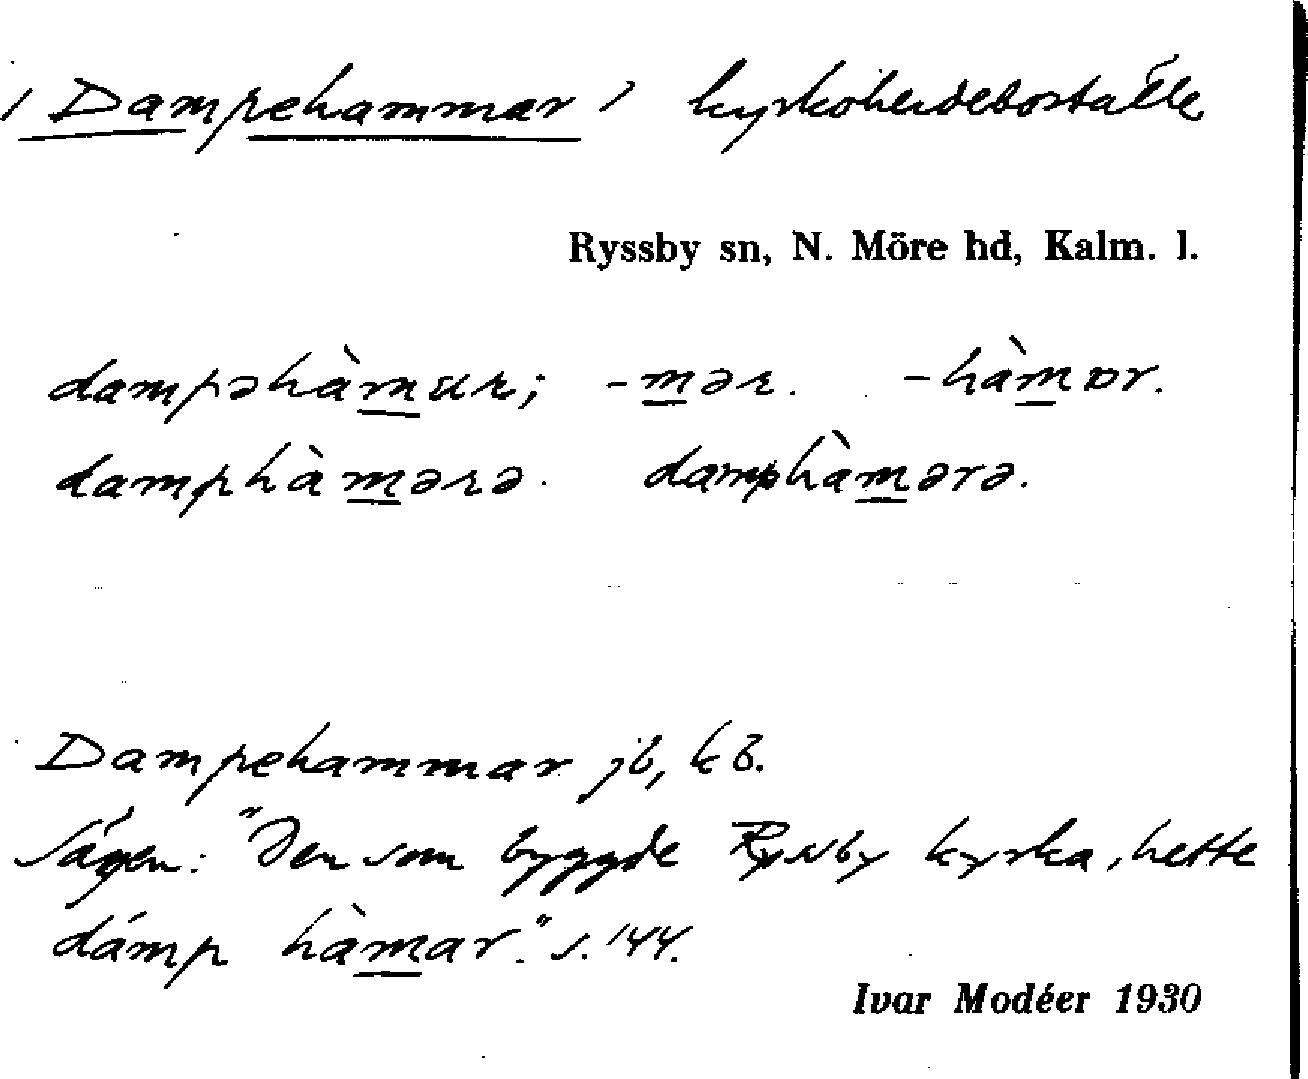 / Dampehammar / kyrkoherdeboställe
Ryssby sn, N. Möre hd, Kalm. l.
dampəhàmur; -mər. -hàmɒr.
damphàmərə. damphàmərə.
Dampehammar jb, kb.
Sägen: "Den som byggde Ryssby kyrka, hette
dámp hàmar." s. 144.
Ivar Modéer 1930